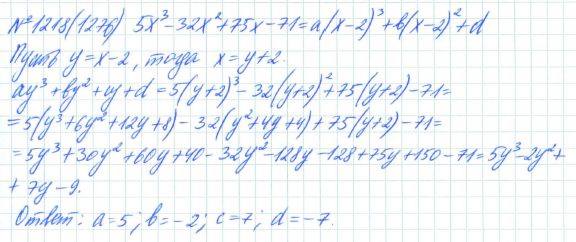 № 1218(1276) 5x³-32x²+75x-71=a(x-2)³+b(x-2)²+d
Пусть y=x-2, тогда x=y+2.
ay³+by²+cy+d=5(y+2)³-32(y+2)²+75(y+2)-71=
=5(y³+6y²+12y+8)-32(y²+4y+4)+75(y+2)-71=
=5y³+30y²+60y+40-32y²-128y-128+75y+150-71=5y³-2y²+
+7y-9.
Ответ: a=5; b=-2; c=7; d=-7.